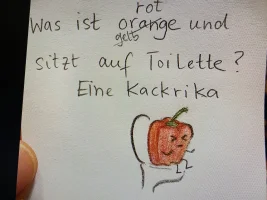 rot
Was ist orange und
gelb
sitzt auf Toilette?
Eine Kackrika